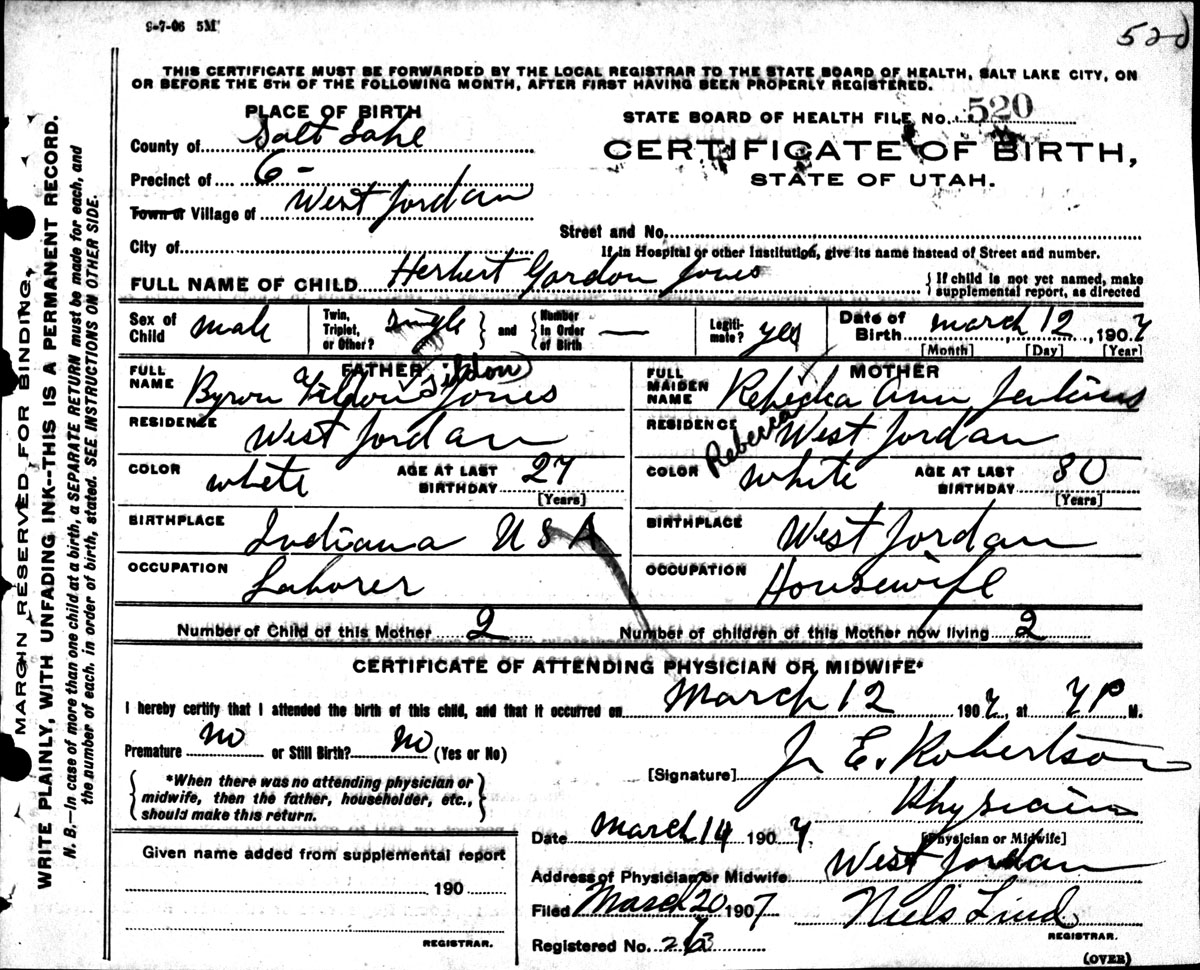 9-7-06 5M
520
THIS CERTIFICATE MUST BE FORWARDED BY THE LOCAL REGISTRAR TO THE STATE BOARD OF HEALTH, SALT LAKE CITY, ON
OR BEFORE THE 5TH OF THE FOLLOWING MONTH, AFTER FIRST HAVING BEEN PROPERLY REGISTERED.
PLACE OF BIRTH
STATE BOARD OF HEALTH FILE No. 520
County of Salt Lake
CERTIFICATE OF BIRTH,
Precinct of 6-
STATE OF UTAH.
Town or Village of West Jordan
Street and No.
City of
If in Hospital or other Institution, give its name instead of Street and number.
FULL NAME OF CHILD Herbert Gordon Jones { If child is not yet named, make supplemental report, as directed
Sex of Child male Twin, Triplet, or Other? Single } and { Number in Order of Birth — Legitimate? yes Date of Birth march 12, 1907
[Month] [Day] [Year]
FATHER
MOTHER
FULL NAME Byron Fildon (Tildon) Jones
FULL MAIDEN NAME Rebicka Ann Jenkins
Rebecca
RESIDENCE West Jordan
RESIDENCE West Jordan
COLOR white AGE AT LAST BIRTHDAY 27 [Years]
COLOR white AGE AT LAST BIRTHDAY 30 [Years]
BIRTHPLACE Indiana USA
BIRTHPLACE West Jordan
OCCUPATION Laborer
OCCUPATION Housewife
Number of Child of this Mother 2 Number of children of this Mother now living 2
CERTIFICATE OF ATTENDING PHYSICIAN OR MIDWIFE*
I hereby certify that I attended the birth of this child, and that it occurred on March 12 1907, at 7 P M.
Premature no or Still Birth? No (Yes or No)
[Signature] J. E. Robertson
{ *When there was no attending physician or
midwife, then the father, householder, etc.,
should make this return. }
Physician
[Physician or Midwife]
Date March 14 1907.
Address of Physician or Midwife West Jordan
Filed March 20 1907 Niels Lind
REGISTRAR.
Registered No. 26
(OVER)
Given name added from supplemental report
190
REGISTRAR.
MARGIN RESERVED FOR BINDING.
WRITE PLAINLY, WITH UNFADING INK--THIS IS A PERMANENT RECORD.
N. B.—In case of more than one child at a birth, a SEPARATE RETURN must be made for each, and
the number of each, in order of birth, stated. SEE INSTRUCTIONS ON OTHER SIDE.